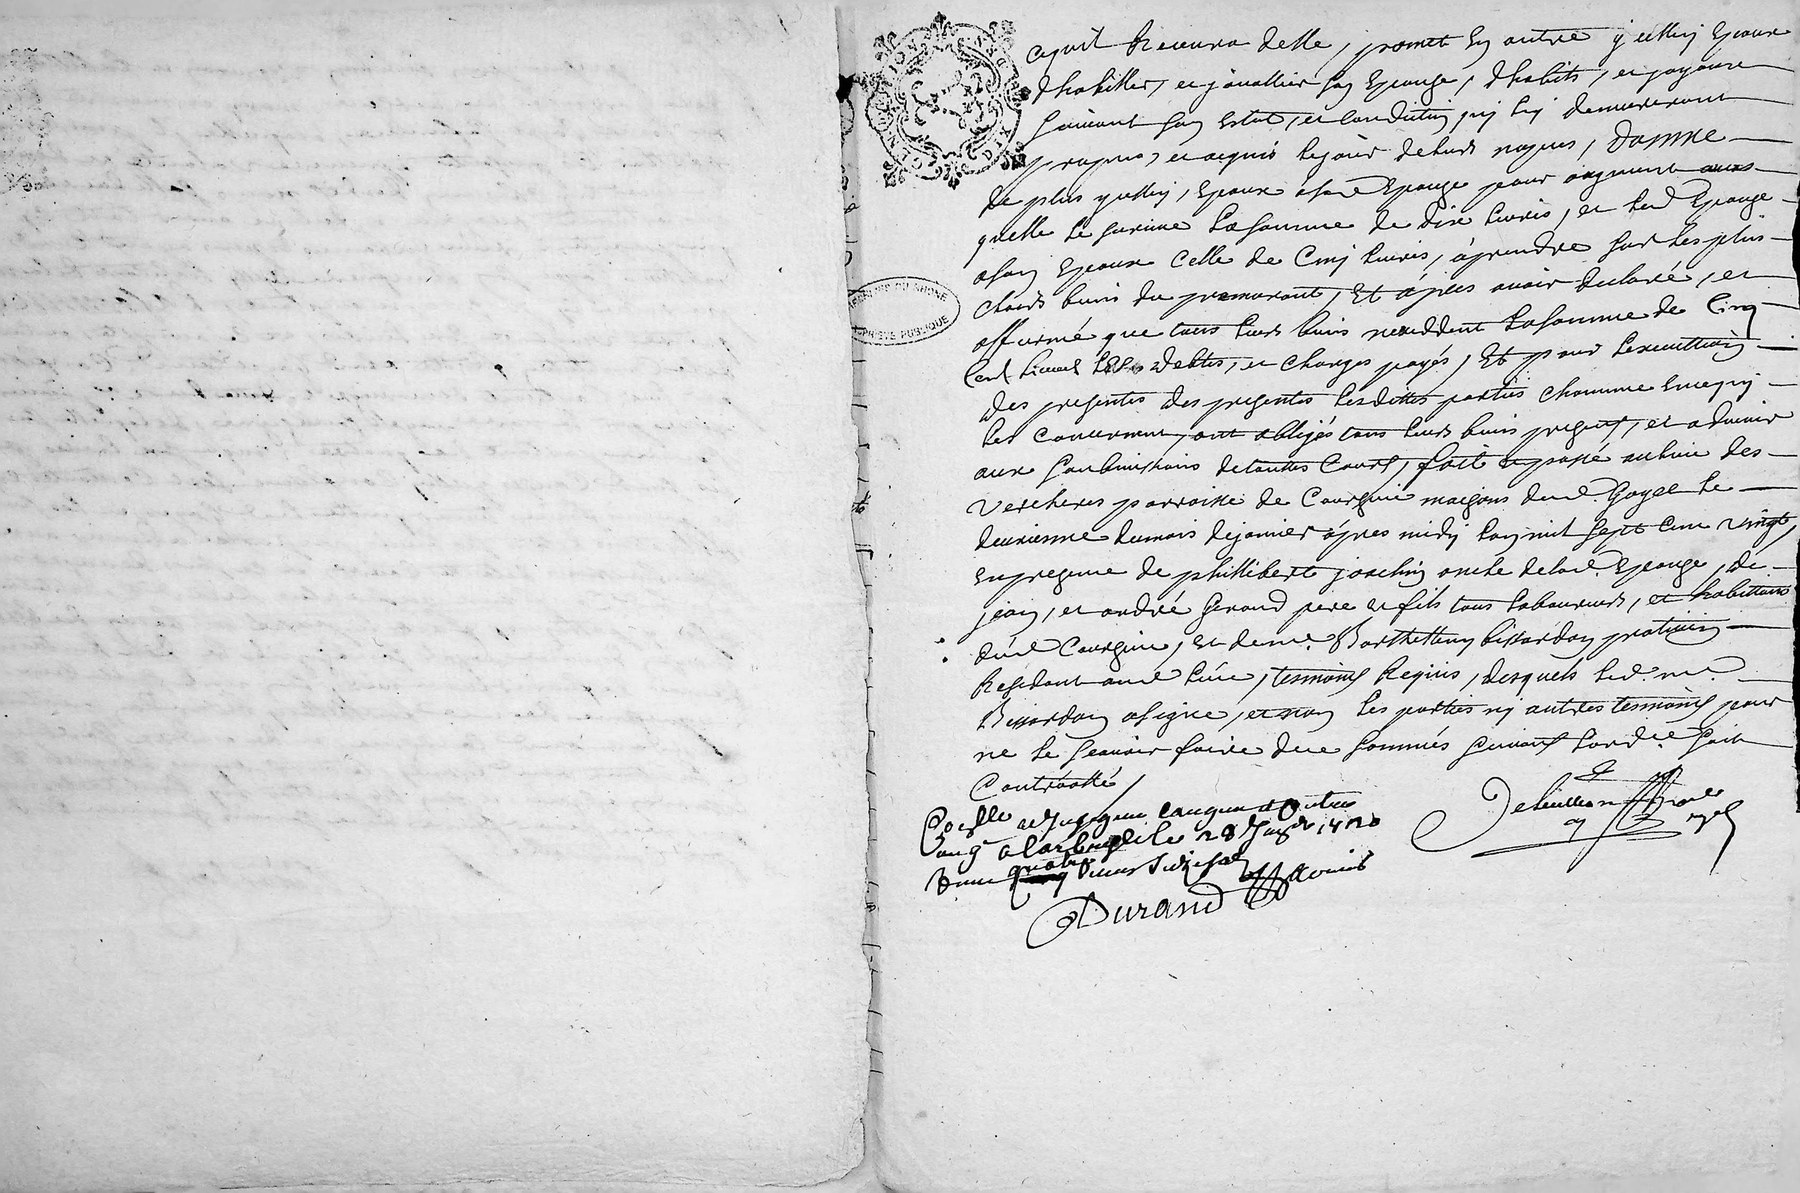 ce quil Recevra delle, promet en outre ycelluy Epoux
dhabiller, et joualler son Epouse, dhabits, et joyaux
suivant son Estat, et Condition qui luy demeureront
propres, et acquis le jour de leurs nopces, Donne
de plus ycelluy, Epoux asad Epouse pour augment aux
quelle le survive la somme de Dix livres, et lad Epouse
ason Epoux Celle de Cinq livres, aprendre sur les plus
clairs biens du premourant, Et apres avoir declaré, et
affirmé que tous leurs biens nexceddent la somme de Cinq
Cent livres debtes, et charges payés, Et pour lexecution
des presentes des presentes lesdittes parties chacune en ce qui
les concernent, ont obligés tous leurs biens presents, et advenir
aux soubmissions de touttes Cours, fait et passé au lieu des
Vercheres parroisse de maisons dud. Goyet le
deuxieme du mois de janvier apres midy lan mil sept cent vingt,
en presence de phillibert joachin oncle de lad. Epouse, de
jean, et andré Geraud pere et fils tous laboureurs, et habittants
dud. et de me. Barthellemy Bissardon praticien
Residant aud lieu, tesmoins Requis, desquels led. me.
Bissardon asigné, et non les parties ny autres tesmoins pour
ne le scavoir faire de ce sommés suivant lord.ce soit
Controollé /
28 1720
Durand